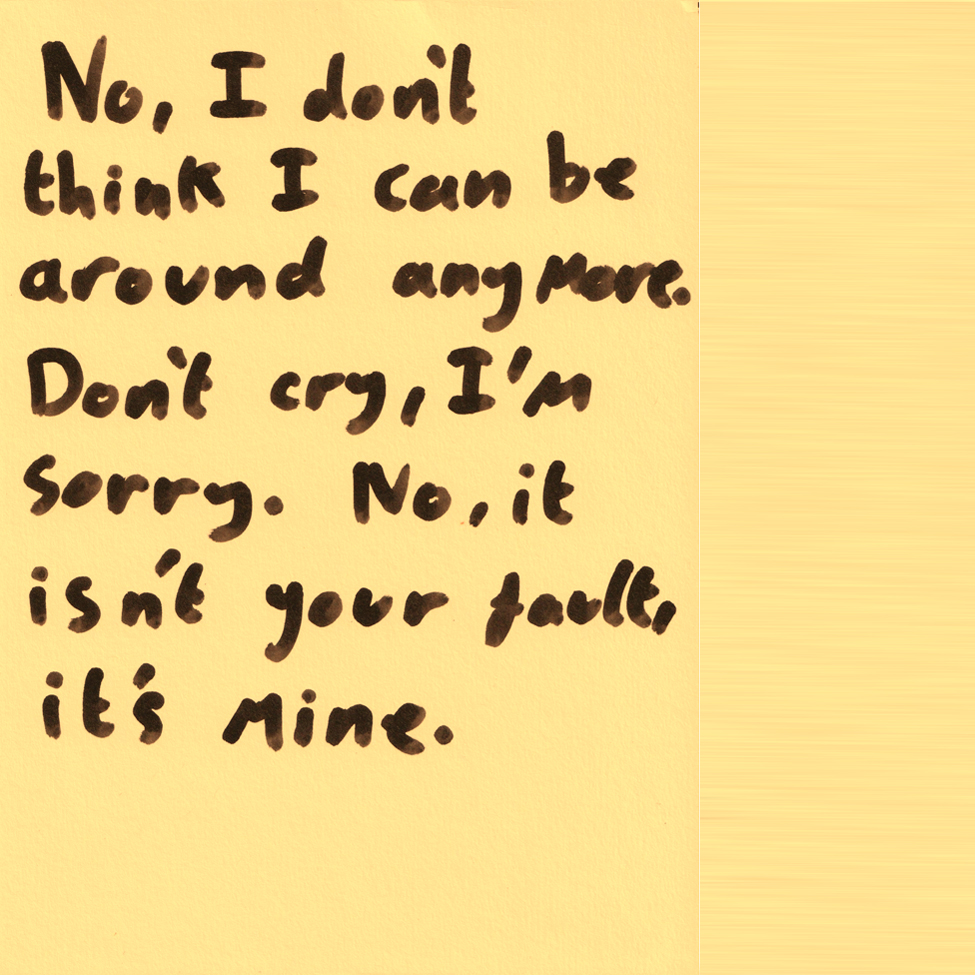 No, I don't
think I can be
around anymore.
Don't cry, I'm
sorry. No, it
isn't your fault,
it's mine.